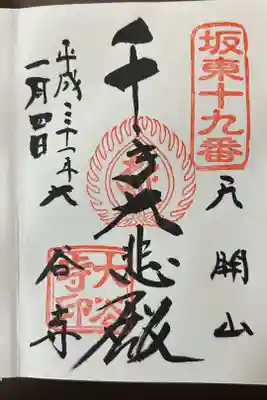 坂東十九番
天開山
千手大悲殿
平成三十一年
一月四日
大谷寺
大谷寺印